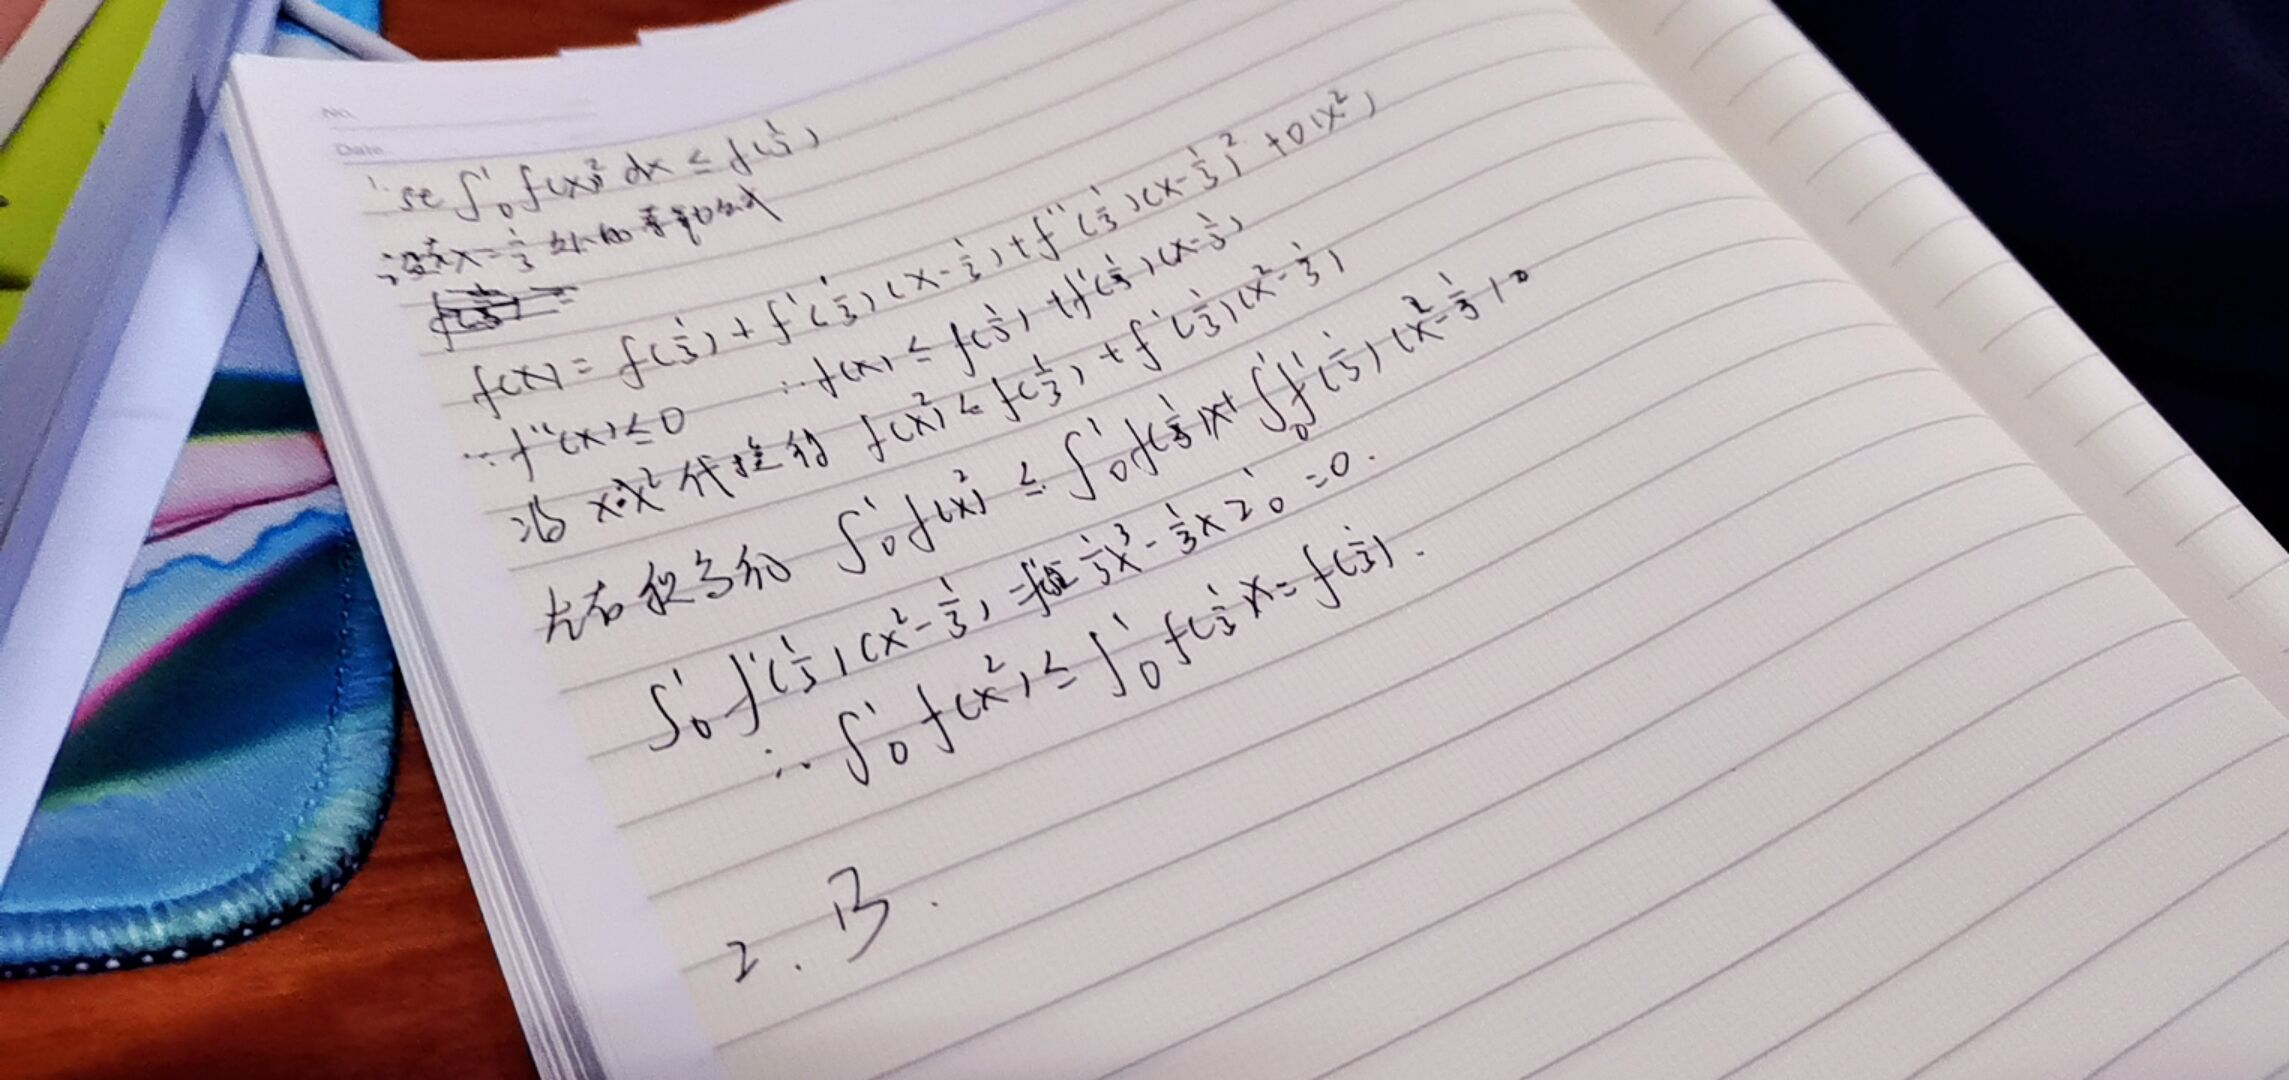 No.
Date.
1. se ∫₀¹ f(x)² dx ≤ f(1/3)
设在x=1/3处的泰勒公式
f(x) = f(1/3) + f'(1/3)(x-1/3) + f''(1/3)(x-1/3)² + o(x²)
∵ f''(x)≤0 ∴ f(x) ≤ f(1/3) + f'(1/3)(x-1/3)
将 x用x²代换得 f(x²) ≤ f(1/3) + f'(1/3)(x²-1/3)
左右积分得 ∫₀¹ f(x²) ≤ ∫₀¹ f(1/3)x + ∫₀¹ f'(1/3)(x²-1/3)
∫₀¹ f'(1/3)(x²-1/3) = 1/3x³ - 1/3x]₀¹ = 0.
∴ ∫₀¹ f(x²) ≤ ∫₀¹ f(1/3 x = f(1/3).
2. B.